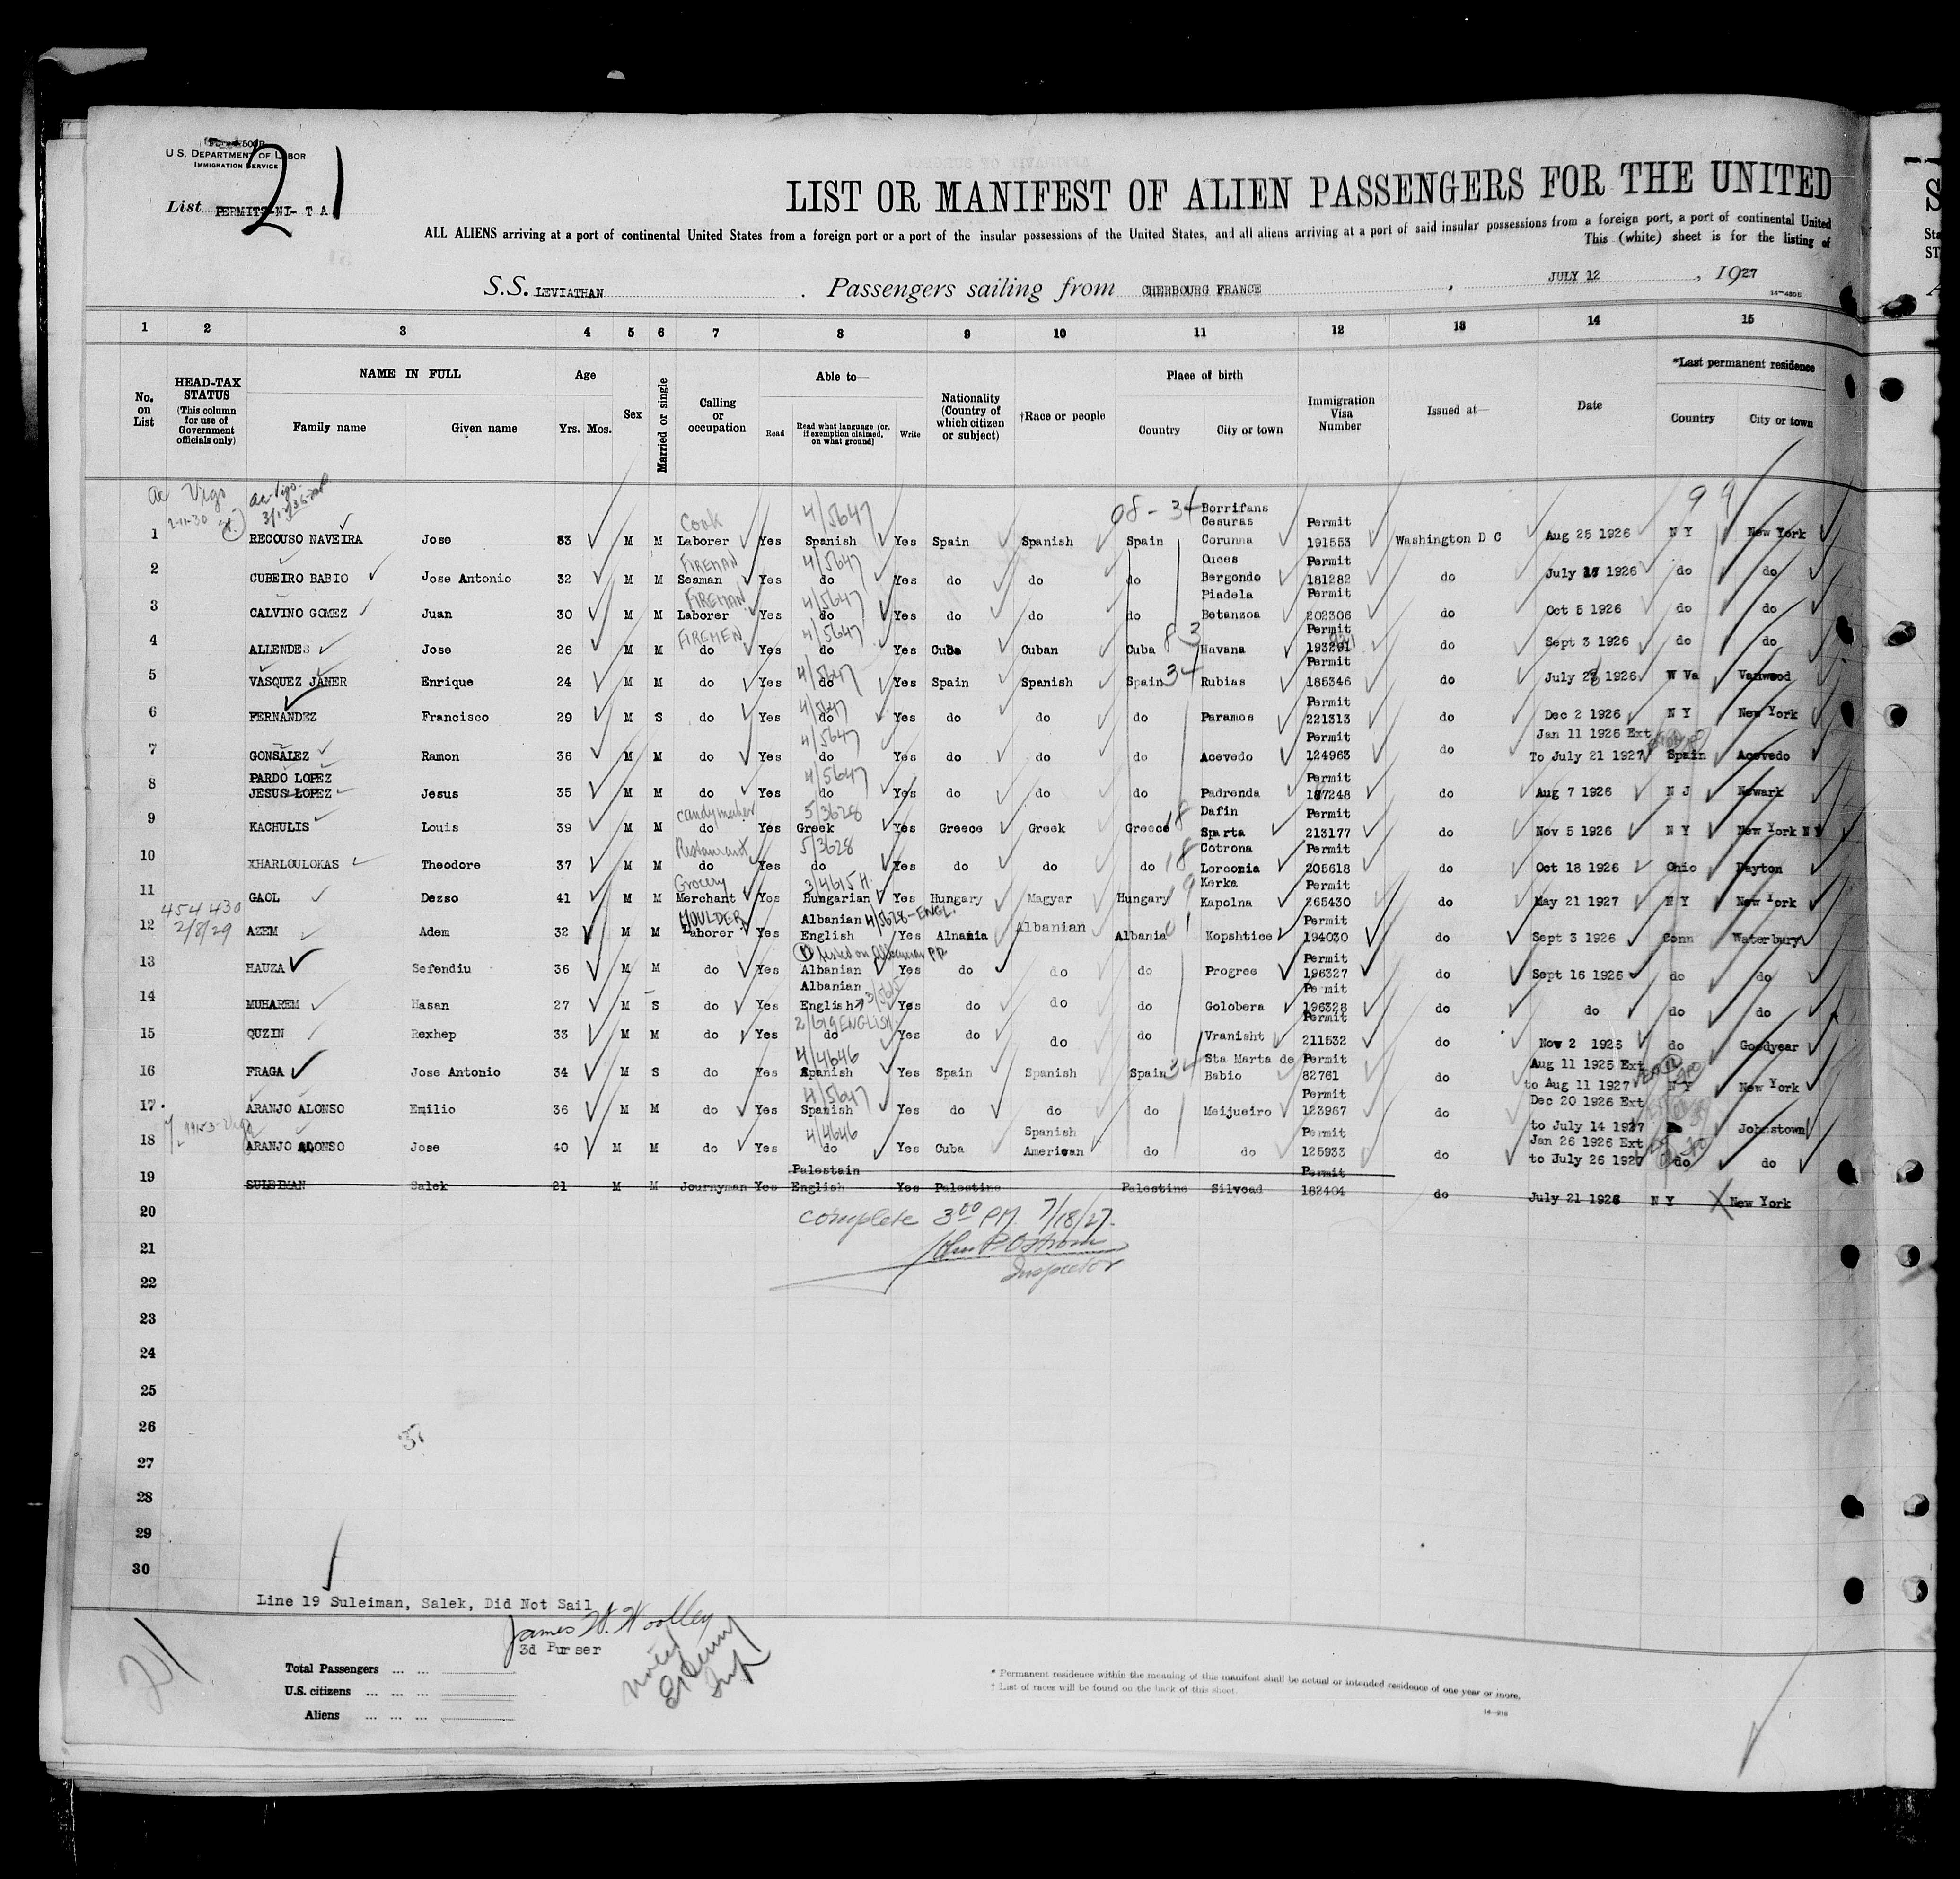 U.S. DEPARTMENT OF LABOR
IMMIGRATION SERVICE
List PERMITS-NI- T A
21
LIST OR MANIFEST OF ALIEN PASSENGERS FOR THE UNITED
ALL ALIENS arriving at a port of continental United States from a foreign port or a port of the insular possessions of the United States, and all aliens arriving at a port of said insular possessions from a foreign port, a port of continental United
This (white) sheet is for the listing of
S.S. LEVIATHAN . Passengers sailing from CHERBOURG FRANCE , JULY 12 , 1927
1 2 3 4 5 6 7 8 9 10 11 12 13 14 15
No. on List
HEAD-TAX STATUS (This column for use of Government officials only)
NAME IN FULL
Family name Given name
Age
Yrs. Mos.
Sex
Married or single
Calling or occupation
Able to—
Read
Read what language (or, if exemption claimed, on what ground)
Write
Nationality (Country of which citizen or subject)
†Race or people
Place of birth
Country City or town
Immigration Visa Number
Issued at—
Date
*Last permanent residence
Country City or town
Vigo
2-11-30
Cook 4/5647 08-34 Borrifans 99
Cesuras Permit
1 RECOUSO NAVEIRA Jose 53 M M Laborer Yes Spanish Yes Spain Spanish Spain Corunna 191553 Washington D C Aug 25 1926 N Y New York
FIREMAN 4/5647 Ouces Permit
2 CUBEIRO BABIO Jose Antonio 32 M M Seaman Yes do Yes do do do Bergondo 181282 do July 1926 do do
FIREMAN 4/5647 Piadela Permit
3 CALVINO GOMEZ Juan 30 M M Laborer Yes do Yes do do do Betanzoa 202306 do Oct 5 1926 do do
FIREMEN 4/5647 83 Permit
4 ALLENDES Jose 26 M M do Yes do Yes Cuba Cuban Cuba Havana 193291 do Sept 3 1926 do do
4/5647 34 Permit
5 VASQUEZ JANER Enrique 24 M M do Yes do Yes Spain Spanish Spain Rubias 185346 do July 28 1926 W Va Vanwood
4/5647 Permit
6 FERNANDEZ Francisco 29 M S do Yes do Yes do do do Paramos 221313 do Dec 2 1926 N Y New York
4/5647 Permit Jan 11 1926 Ext
7 GONSALEZ Ramon 36 M M do Yes do Yes do do do Acevedo 124963 do To July 21 1927 Spain Acevedo
PARDO LOPEZ 4/5647 Permit
8 JESUS LOPEZ Jesus 35 M M do Yes do Yes do do do Padrenda 187248 do Aug 7 1926 N J Newark
candymaker 5/3628 18 Dafin Permit
9 KACHULIS Louis 39 M M do Yes Greek Yes Greece Greek Greece Sparta 213177 do Nov 5 1926 N Y New York N Y
Restaurant 5/3628 18 Cotrona Permit
10 XHARLOULOKAS Theodore 37 M M do Yes do Yes do do do Lorconia 205618 do Oct 18 1926 Ohio Dayton
Grocery 3/4615 H. 19 Kerka Permit
11 GAOL Dezso 41 M M Merchant Yes Hungarian Yes Hungary Magyar Hungary Kapolna 265430 do May 21 1927 N Y New York
454 430
2/8/29
MOULDER Albanian 4/5628-ENGL. 01 Permit
12 AZEM Adem 32 M M Laborer Yes English Yes Alnania Albanian Albania Kopshtice 194030 do Sept 3 1926 Conn Waterbury
Permit
13 HAUZA Sefendiu 36 M M do Yes Albanian Yes do do do Progree 196327 do Sept 16 1926 do do
Albanian 3/5615 Permit
14 MUHAREM Hasan 27 M S do Yes English Yes do do do Golobera 196328 do do do do
2/619 ENGLISH Permit
15 QUZIN Rexhep 33 M M do Yes do Yes do do do Vranisht 211532 do Nov 2 1926 do Goodyear
4/4646 34 Sta Marta de Permit Aug 11 1925 Ext
16 FRAGA Jose Antonio 34 M S do Yes Spanish Yes Spain Spanish Spain Babio 82761 do to Aug 11 1927 N Y New York
4/5647 Permit Dec 20 1926 Ext
17 ARANJO ALONSO Emilio 36 M M do Yes Spanish Yes do do do Meijueiro 123967 do to July 14 1927 Johnstown
4/4646 Spanish Permit Jan 26 1926 Ext
18 ARANJO ALONSO Jose 40 M M do Yes do Yes Cuba American do do 125933 do to July 26 1927 do do
Palestain Permit
19 SULEIMAN Salek 21 M M Journyman Yes English Yes Palestine Palestine Silvead 182404 do July 21 1926 N Y New York
20 complete 3 00 PM. 7/18/27.
21
Inspector
22
23
24
25
26
27
28
29
30
Line 19 Suleiman, Salek, Did Not Sail
James W. Woolley
3d Purser
21
Noted
Total Passengers
U.S. citizens
Aliens
* Permanent residence within the meaning of this manifest shall be actual or intended residence of one year or more.
† List of races will be found on the back of this sheet.